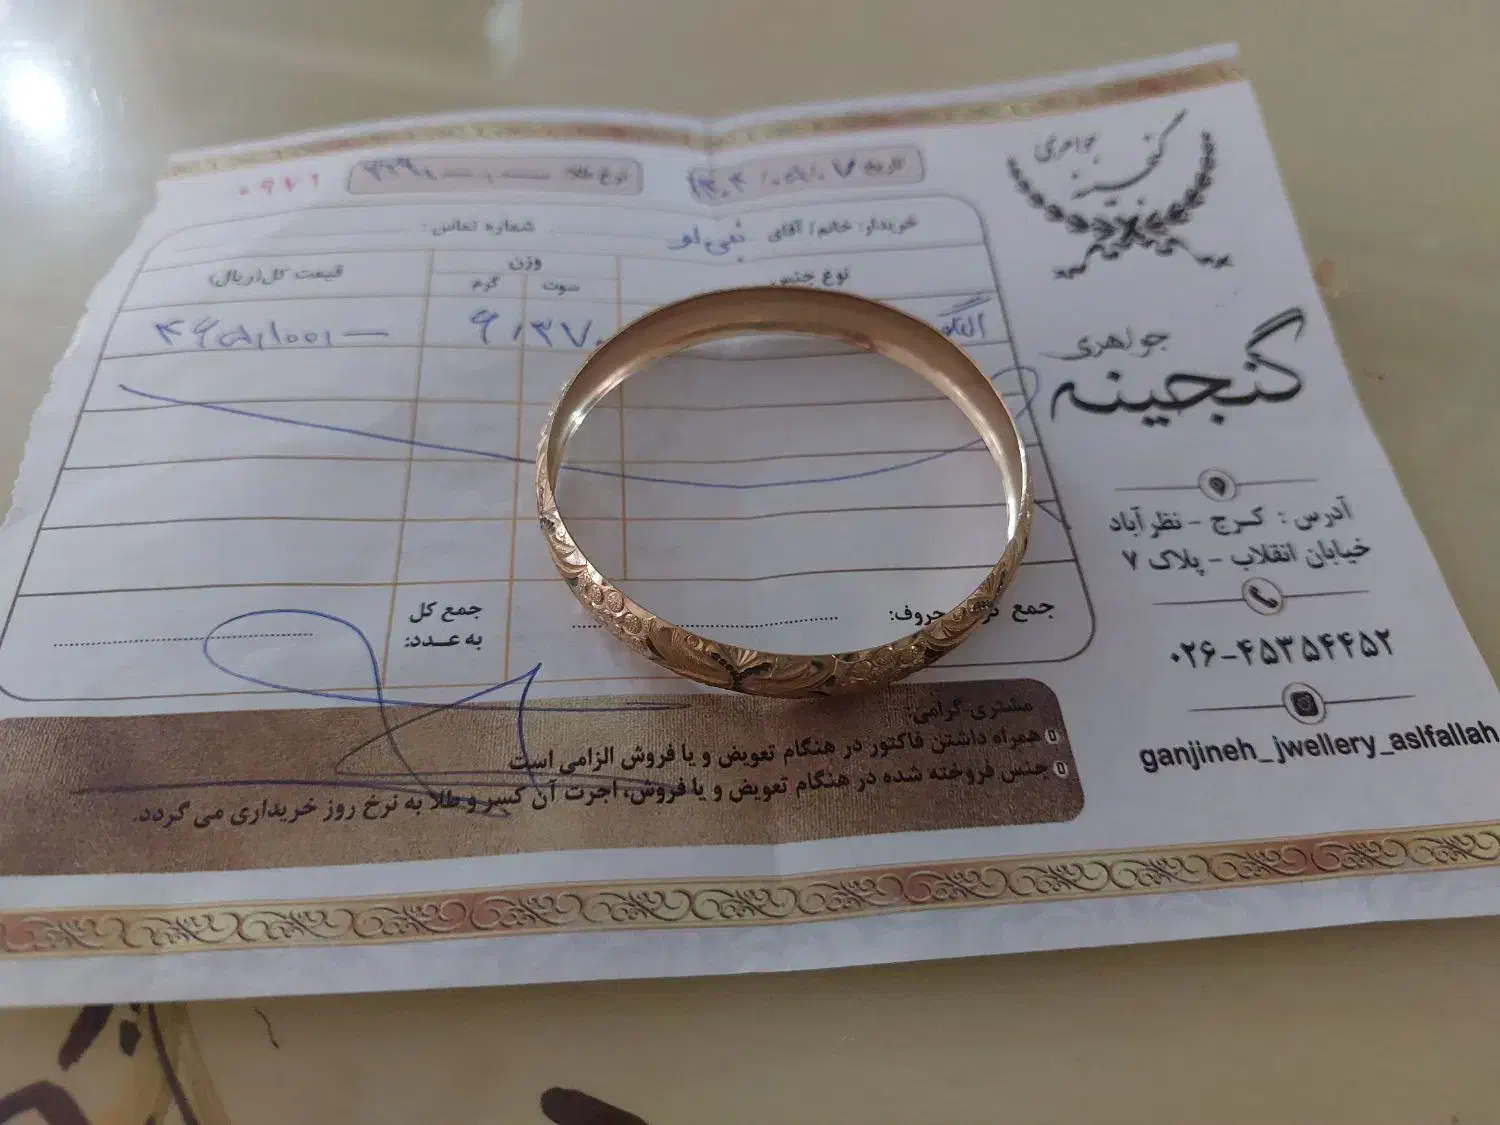 جواهری
گنجینه
تاریخ ۱۴۰۳/۰۵/۰۷
نرخ طلا:
۰۹۷۱
خریدار: خانم/ آقای
شماره تماس:
نوع جنس
وزن
سوت
گرم
قیمت کل(ریال)
النگو
۶,۳۷۰
جمع
حروف:
جمع کل
به عدد:
مشتری گرامی:
همراه داشتن فاکتور در هنگام تعویض و یا فروش الزامی است
جنس فروخته شده در هنگام تعویض و یا فروش، اجرت آن کسر و طلا به نرخ روز خریداری می گردد.
جواهری
گنجینه
آدرس: کرج - نظرآباد
خیابان انقلاب - پلاک ۷
۰۲۶-۴۵۳۵۴۴۵۲
ganjineh_jwellery_aslfallah